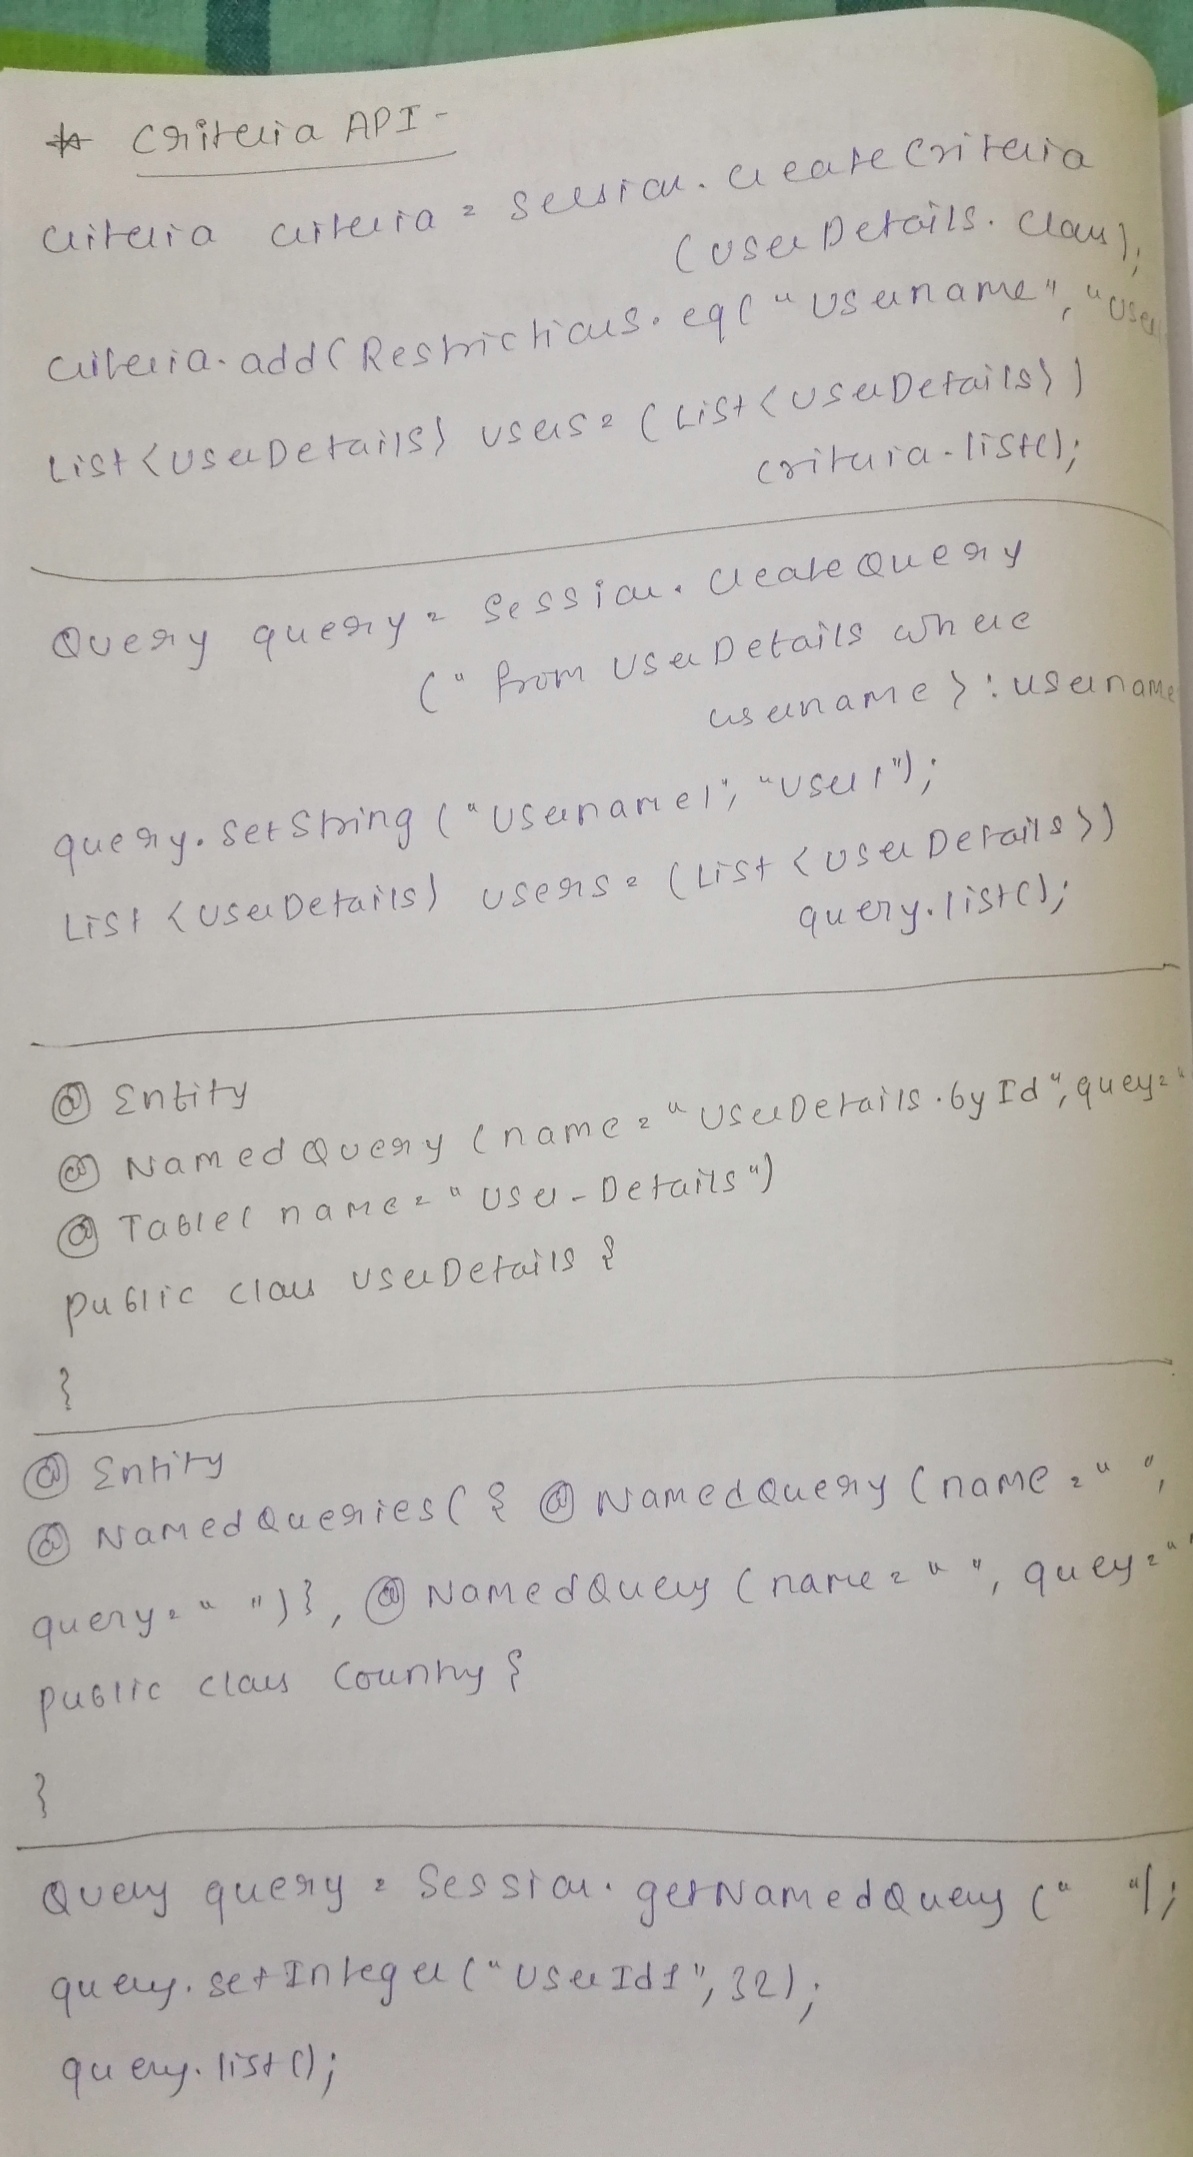 * Criteria API -
Criteria criteria = session.createCriteria
(UserDetails.class);
criteria.add(Restrictions.eq("username", "use
List<UserDetails> users = (List<UserDetails>)
criteria.list();
Query query = session.createQuery
(" from UserDetails where
username > : username
query.setString("username1", "user1");
List <UserDetails> users = (List <UserDetails>)
query.list();
@ Entity
@ NamedQuery (name = "UserDetails.byId", quey = "
@ Table( name = "User-Details")
public class UserDetails {
}
@ Entity
@ NamedQueries( { @ NamedQuery (name = " ",
query = " ")}, @ NamedQuery (name = " ", quey = "
public class Country {
}
Query query = session.getNamedQuery (" ");
query.setInteger("UserId1", 32);
query.list();